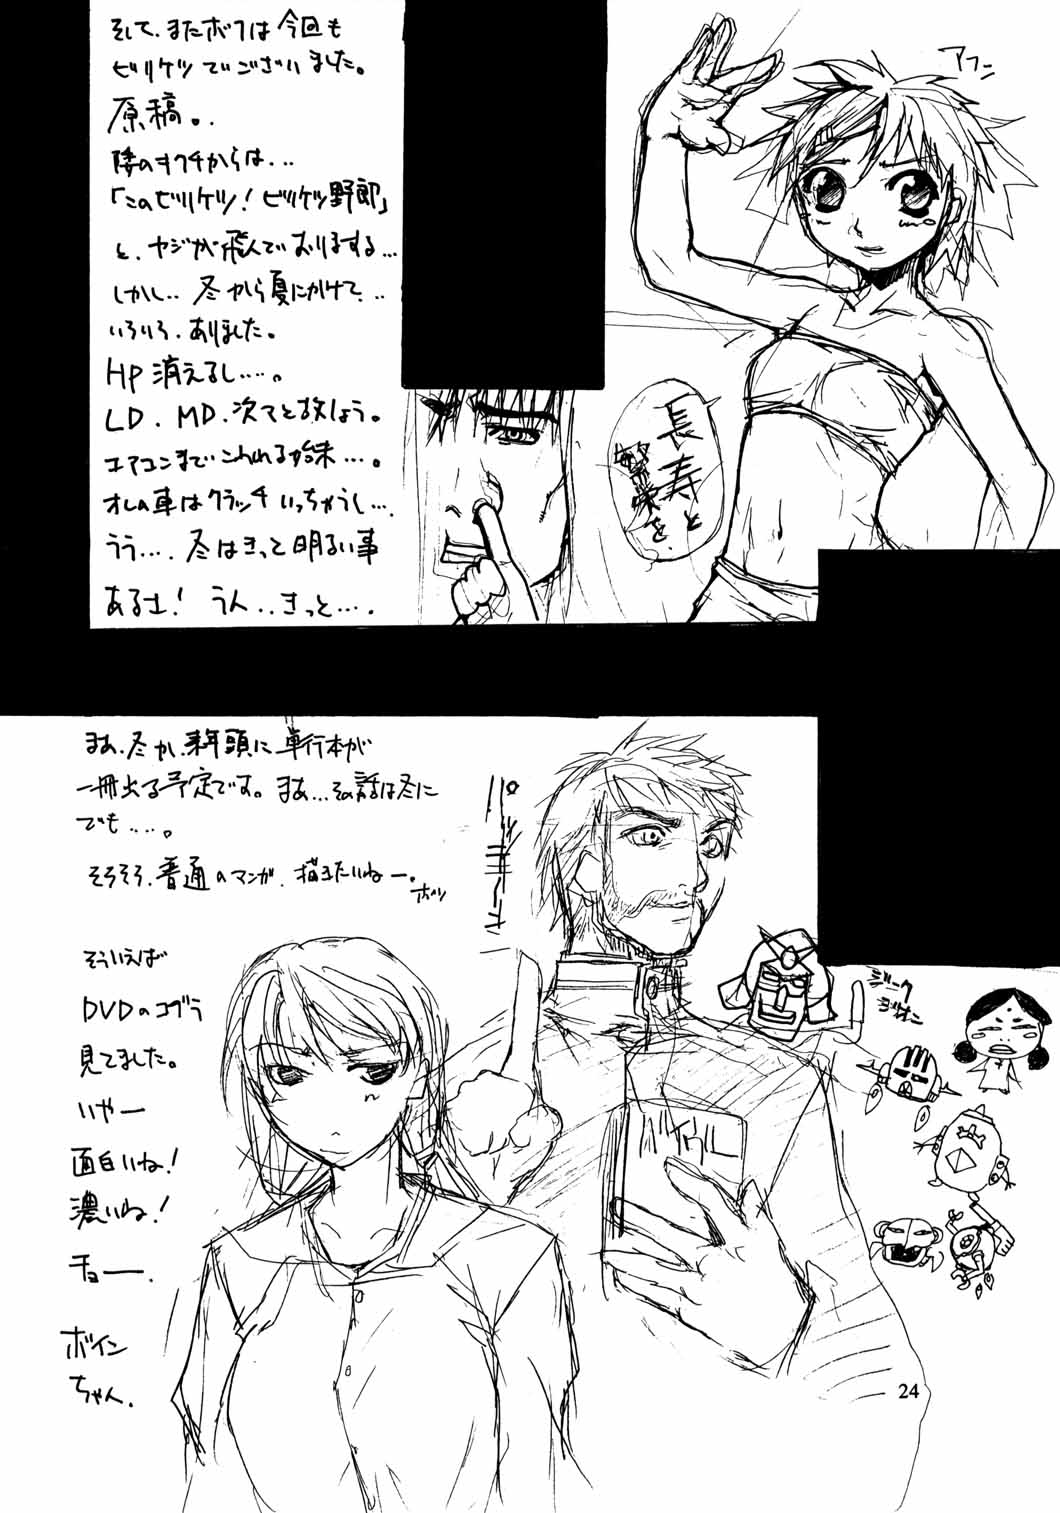 そして、またボクは今回も
ビリケツでございました。
原稿。.
隣のキクチからは...
「このビリケツ！ビリケツ野郎」
と、ヤジが飛んでおりまする...
しかし.. 冬から夏にかけて...
いろいろ、ありました。
HP 消えるし....。
LD、MD、次々と故しょう。
エアコンまでこわれる始末...。
オレの車はクラッチいっちゃうし...。
うう...、冬はきっと明るい事
あるさ！ うん..きっと...。
アフン
長寿と
繁栄を
まあ、冬か、来年頭に単行本が
一冊出る予定です。まぁ...その話は冬に
でも...。
そろそろ、普通のマンガ、描きたいねー。
ホッ
そういえば
DVDのコブラ
見てました。
いやー
面白いね！
濃いね！
チョー、
ボイン
ちゃん。
バイブル
24